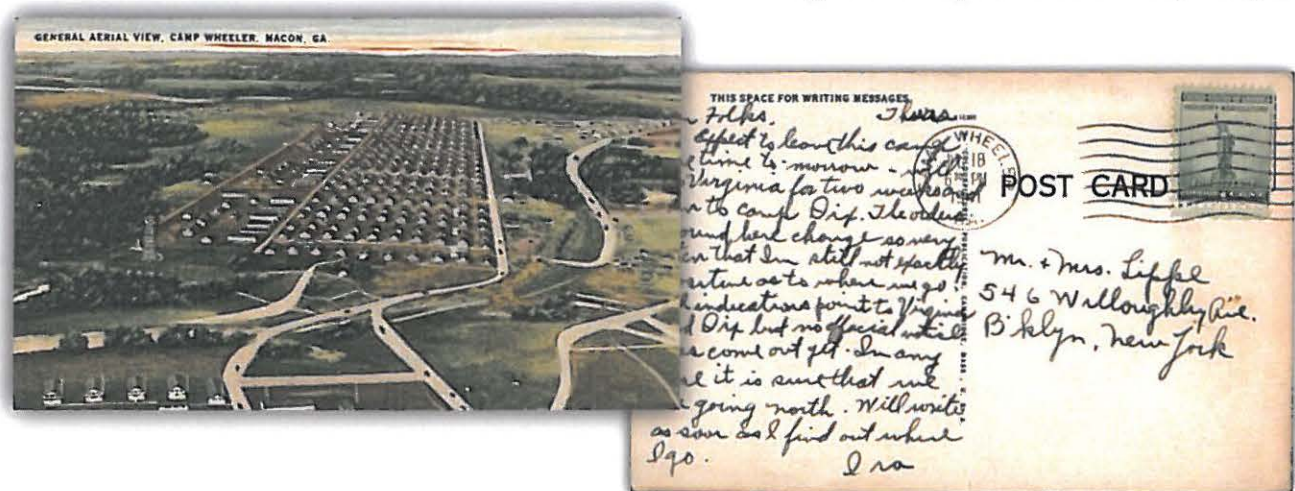 GENERAL AERIAL VIEW, CAMP WHEELER, MACON, GA.
THIS SPACE FOR WRITING MESSAGES
Folks, Thurs
expect to leave this camp
time to-morrow -
Virginia for two weeks and
to camp Dix. The orders
here change so very
that I'm still not exactly
as to where we go.
indications point to Virginia
Dix but no official notice
come out yet. In any
it is sure that we
going north. Will write
as soon as I find out where
I go. Ira
WHEELER
18
POST CARD
Mr. + Mrs. Liffel
546 Willoughby Ave.
B'klyn, New York